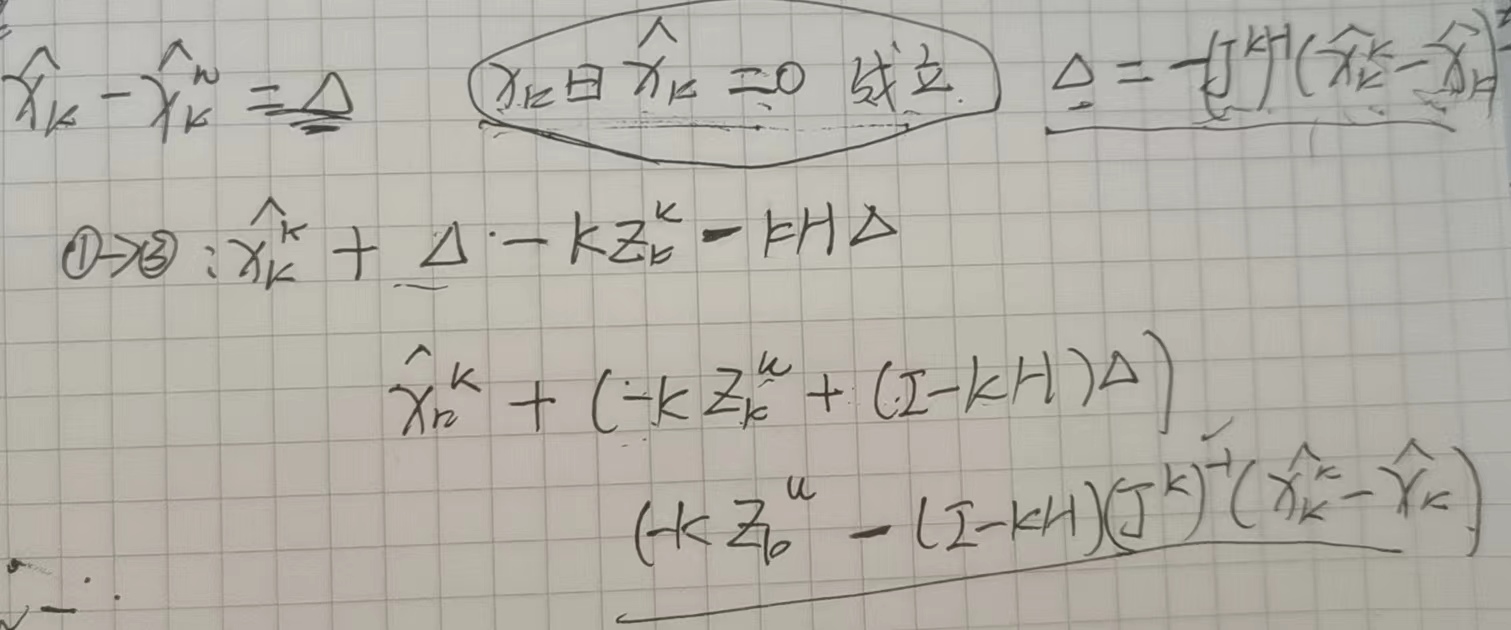 x̂_k − x̂_k^κ = Δ (x_k⊟x̂_k = 0 成立.) Δ = −(J^κ)^{-1}(x̂_k^κ − x̂_k)
①→③: x̂_k^κ + Δ − K Z_k^κ − KHΔ
x̂_k^κ + (−K Z_k^κ + (I−KH)Δ)
(−K Z_k^κ − (I−KH)(J^κ)^{-1}(x̂_k^κ − x̂_k)